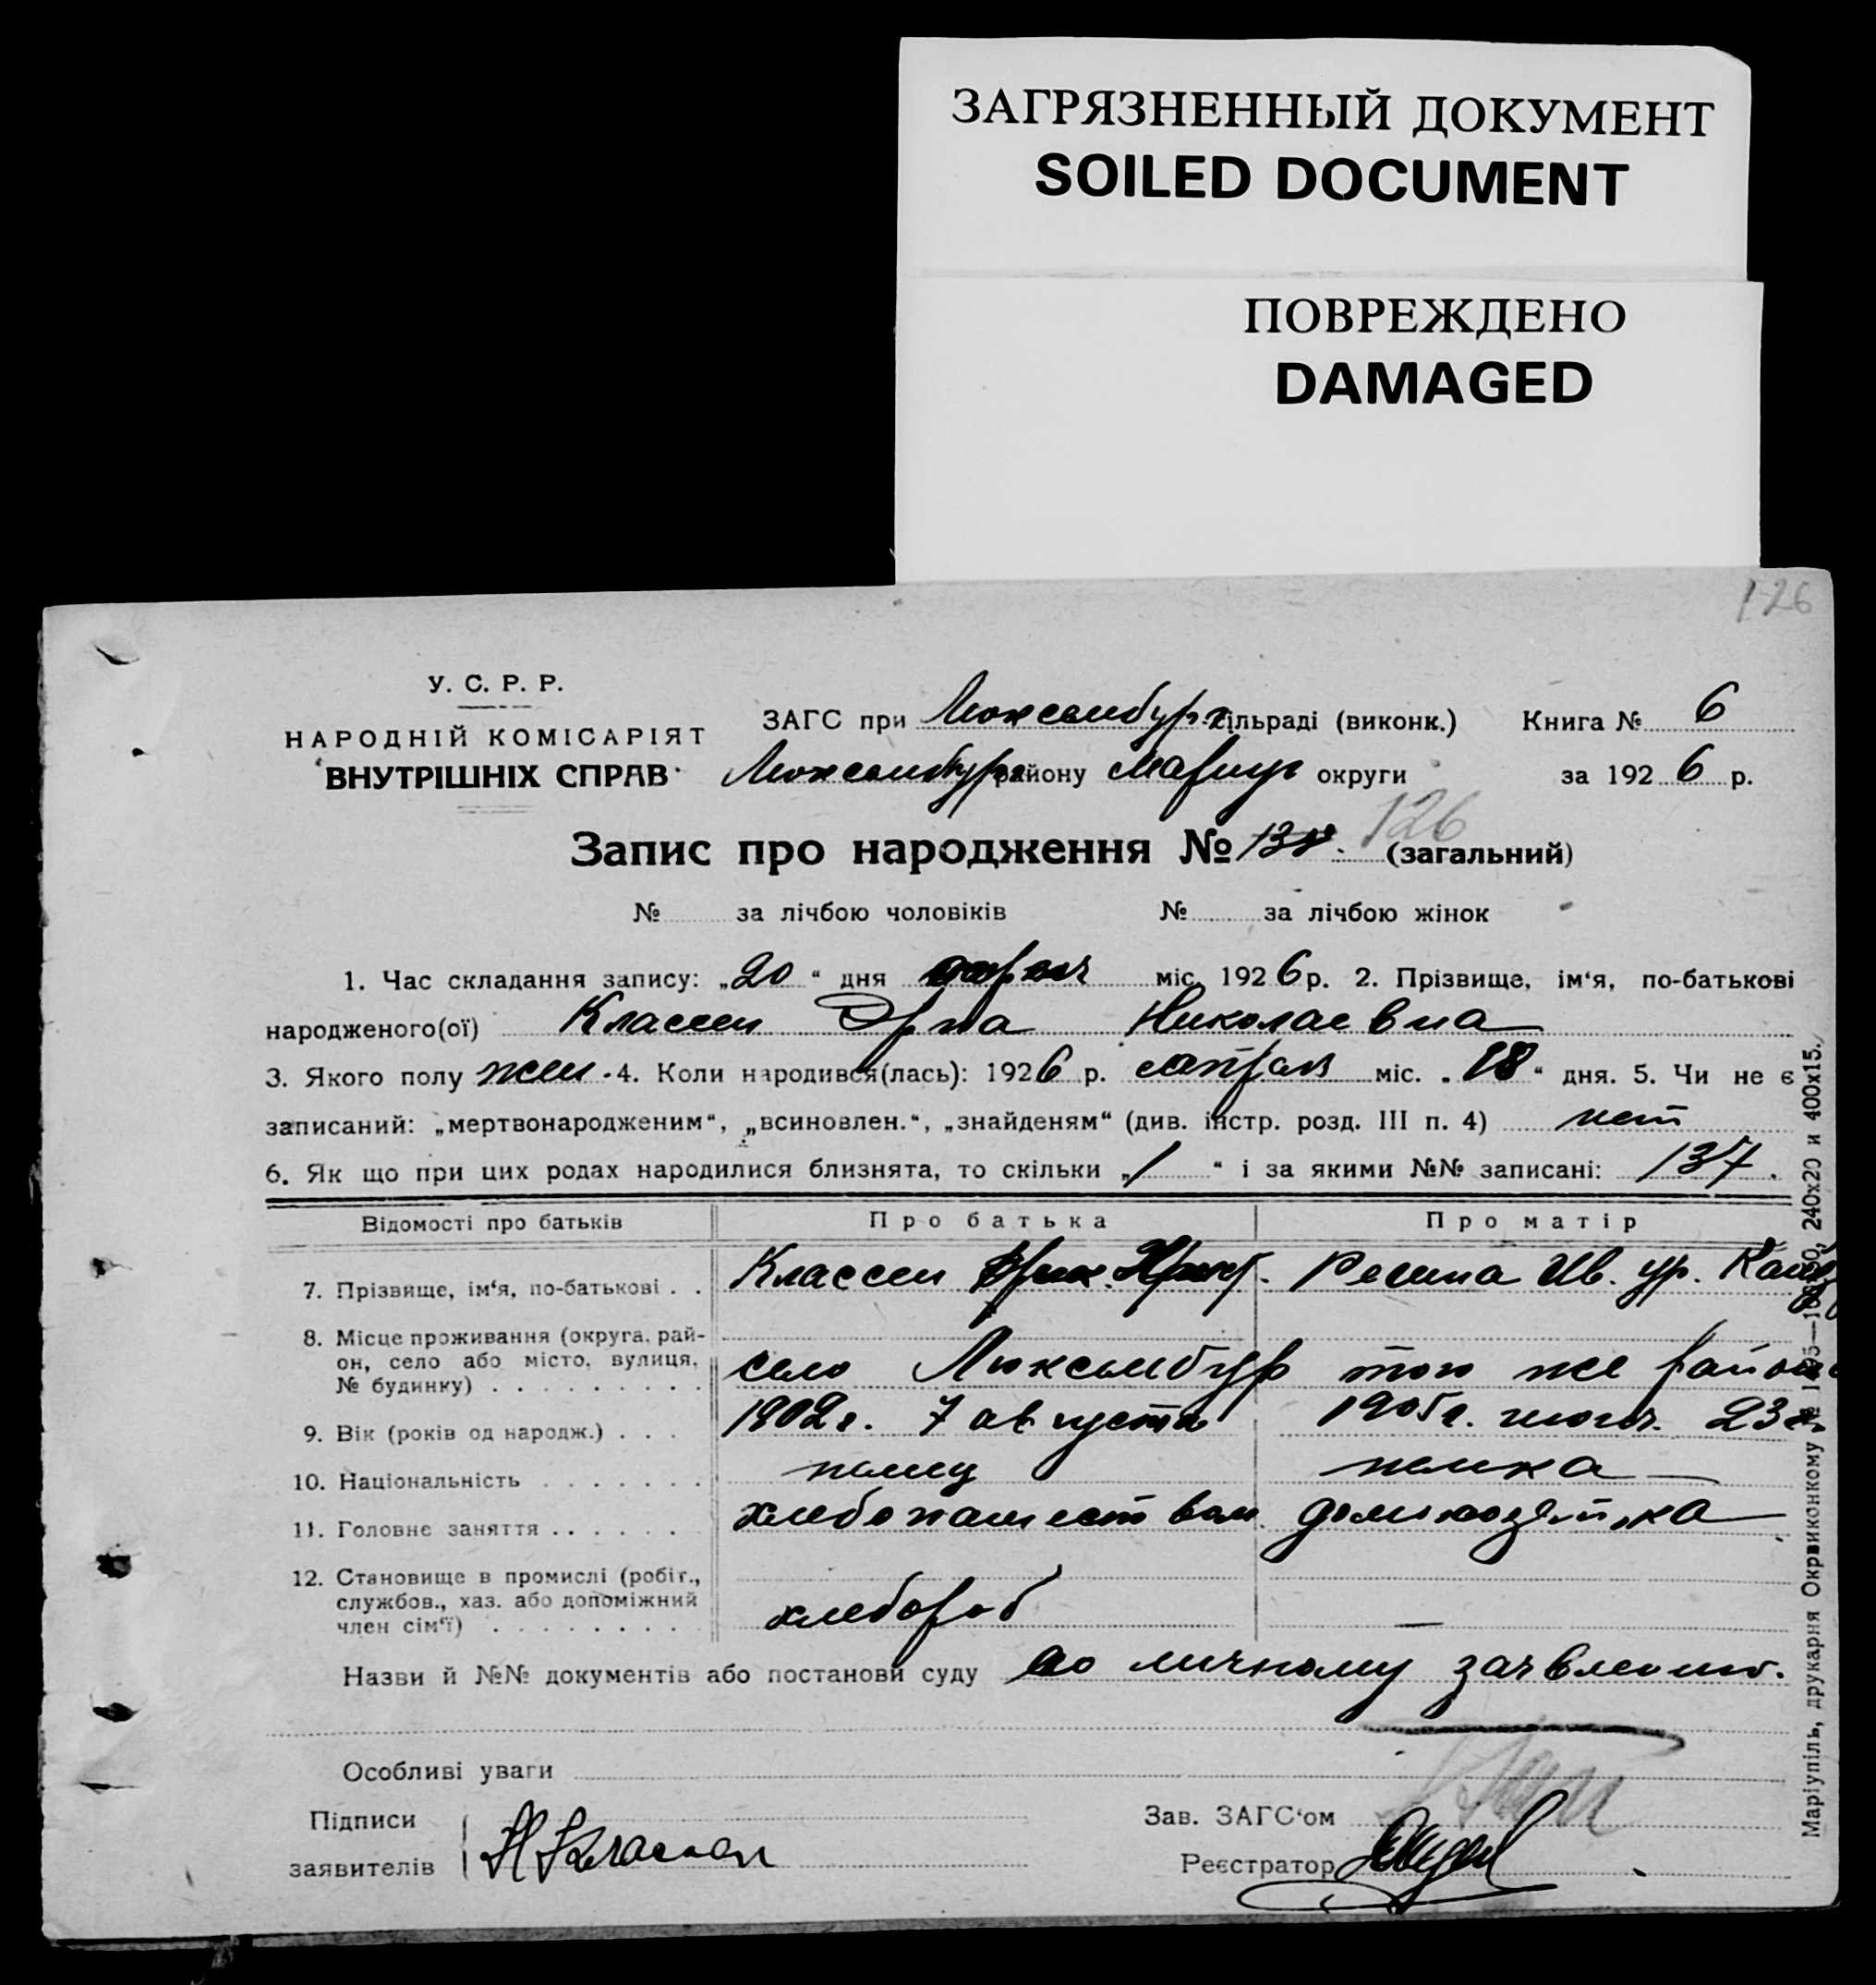 ЗАГРЯЗНЕННЫЙ ДОКУМЕНТ
SOILED DOCUMENT
ПОВРЕЖДЕНО
DAMAGED
126
У. С. Р. Р.
НАРОДНІЙ КОМІСАРІЯТ
ВНУТРІШНІХ СПРАВ
ЗАГС при Люксембург. сільраді (виконк.) Книга № 6
Люксембург району Мариуп округи за 1926 р.
126
Запис про народження № 138. (загальний)
№ за лічбою чоловіків № за лічбою жінок
1. Час складання запису: „20“ дня апреля міс. 1926 р. 2. Прізвище, ім‘я, по-батькові
народженого(ої) Классен Эрна Николаевна
3. Якого полу жен. 4. Коли народився(лась): 1926 р. апреля міс. „18“ дня. 5. Чи не є
записаний: „мертвонародженим“, „всиновлен.“, „знайденям“ (див. інстр. розд. III п. 4) нет
6. Як що при цих родах народилися близнята, то скільки „1“ і за якими №№ записані: 137.
Відомості про батьків Про батька Про матір
7. Прізвище, ім‘я, по-батькові . . Классен Регина Ив. ур.
8. Місце проживання (округа, рай-
он, село або місто, вулиця,
№ будинку) . . . . . . . . . село Люксембург того же района
9. Вік (років од народж.) . . . 1902 г. 7 августа 1905 г. 23
10. Національність . . . . . . . немец немка
11. Головне заняття . . . . . . хлебопашеством домохозяйка
12. Становище в промислі (робіт.,
службов., хаз. або допоміжний
член сім‘ї) . . . . . . . . хлебороб —
Назви й №№ документів або постанови суду по личному заявлению.
Особливі уваги
Підписи
заявителів Н Классен
Зав. ЗАГС‘ом
Реєстратор
Маріупіль, друкарня Окрвиконкому 240х20 и 400х15.